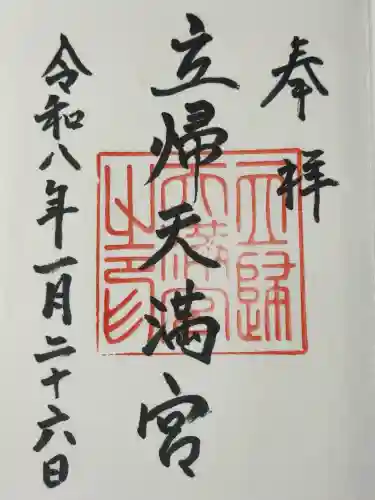 奉祥
立帰天満宮
立歸天満宮之印
令和八年一月二十六日